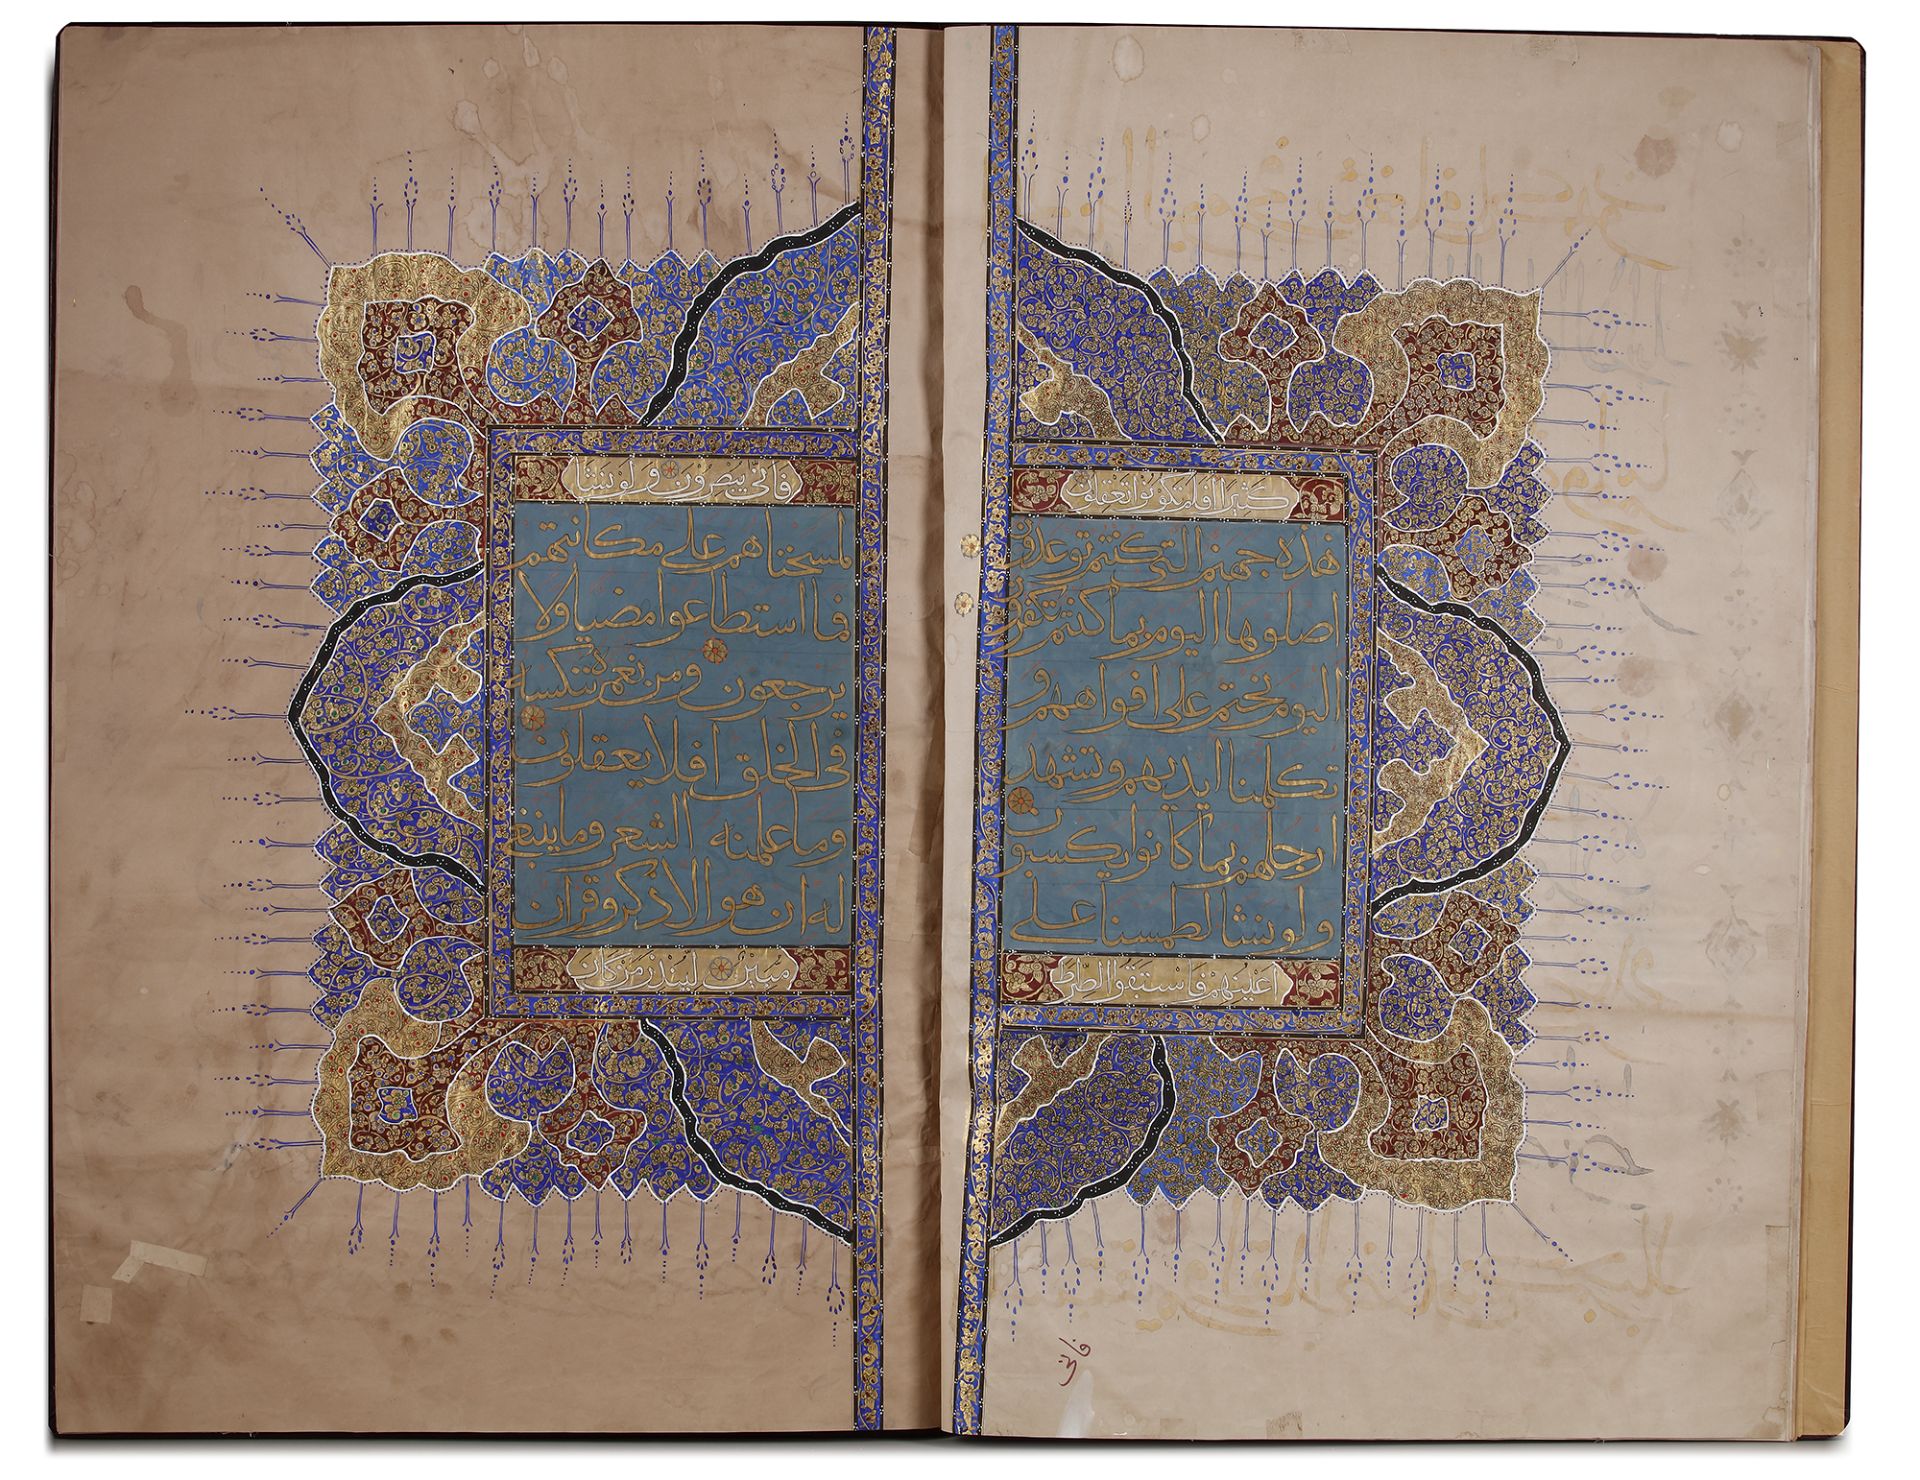 كثيرا افلم تكونوا تعقلون
هذه جهنم التي كنتم توعدون
اصلوها اليوم بما كنتم تكفرون
اليوم نختم على افواههم و
تكلمنا ايديهم وتشهد
ارجلهم بما كانوا يكسبون
ولو نشا لطمسنا على
اعينهم فاستبقوا الصرط
فانى
فانى يبصرون ولو نشا
لمسخناهم على مكانتهم
فما استطاعوا مضيا ولا
يرجعون ومن نعمره ننكسه
فى الخلق افلا يعقلون
وما علمنه الشعر وما ينبغى
له ان هو الا ذكر وقران
مبين لينذر من كان